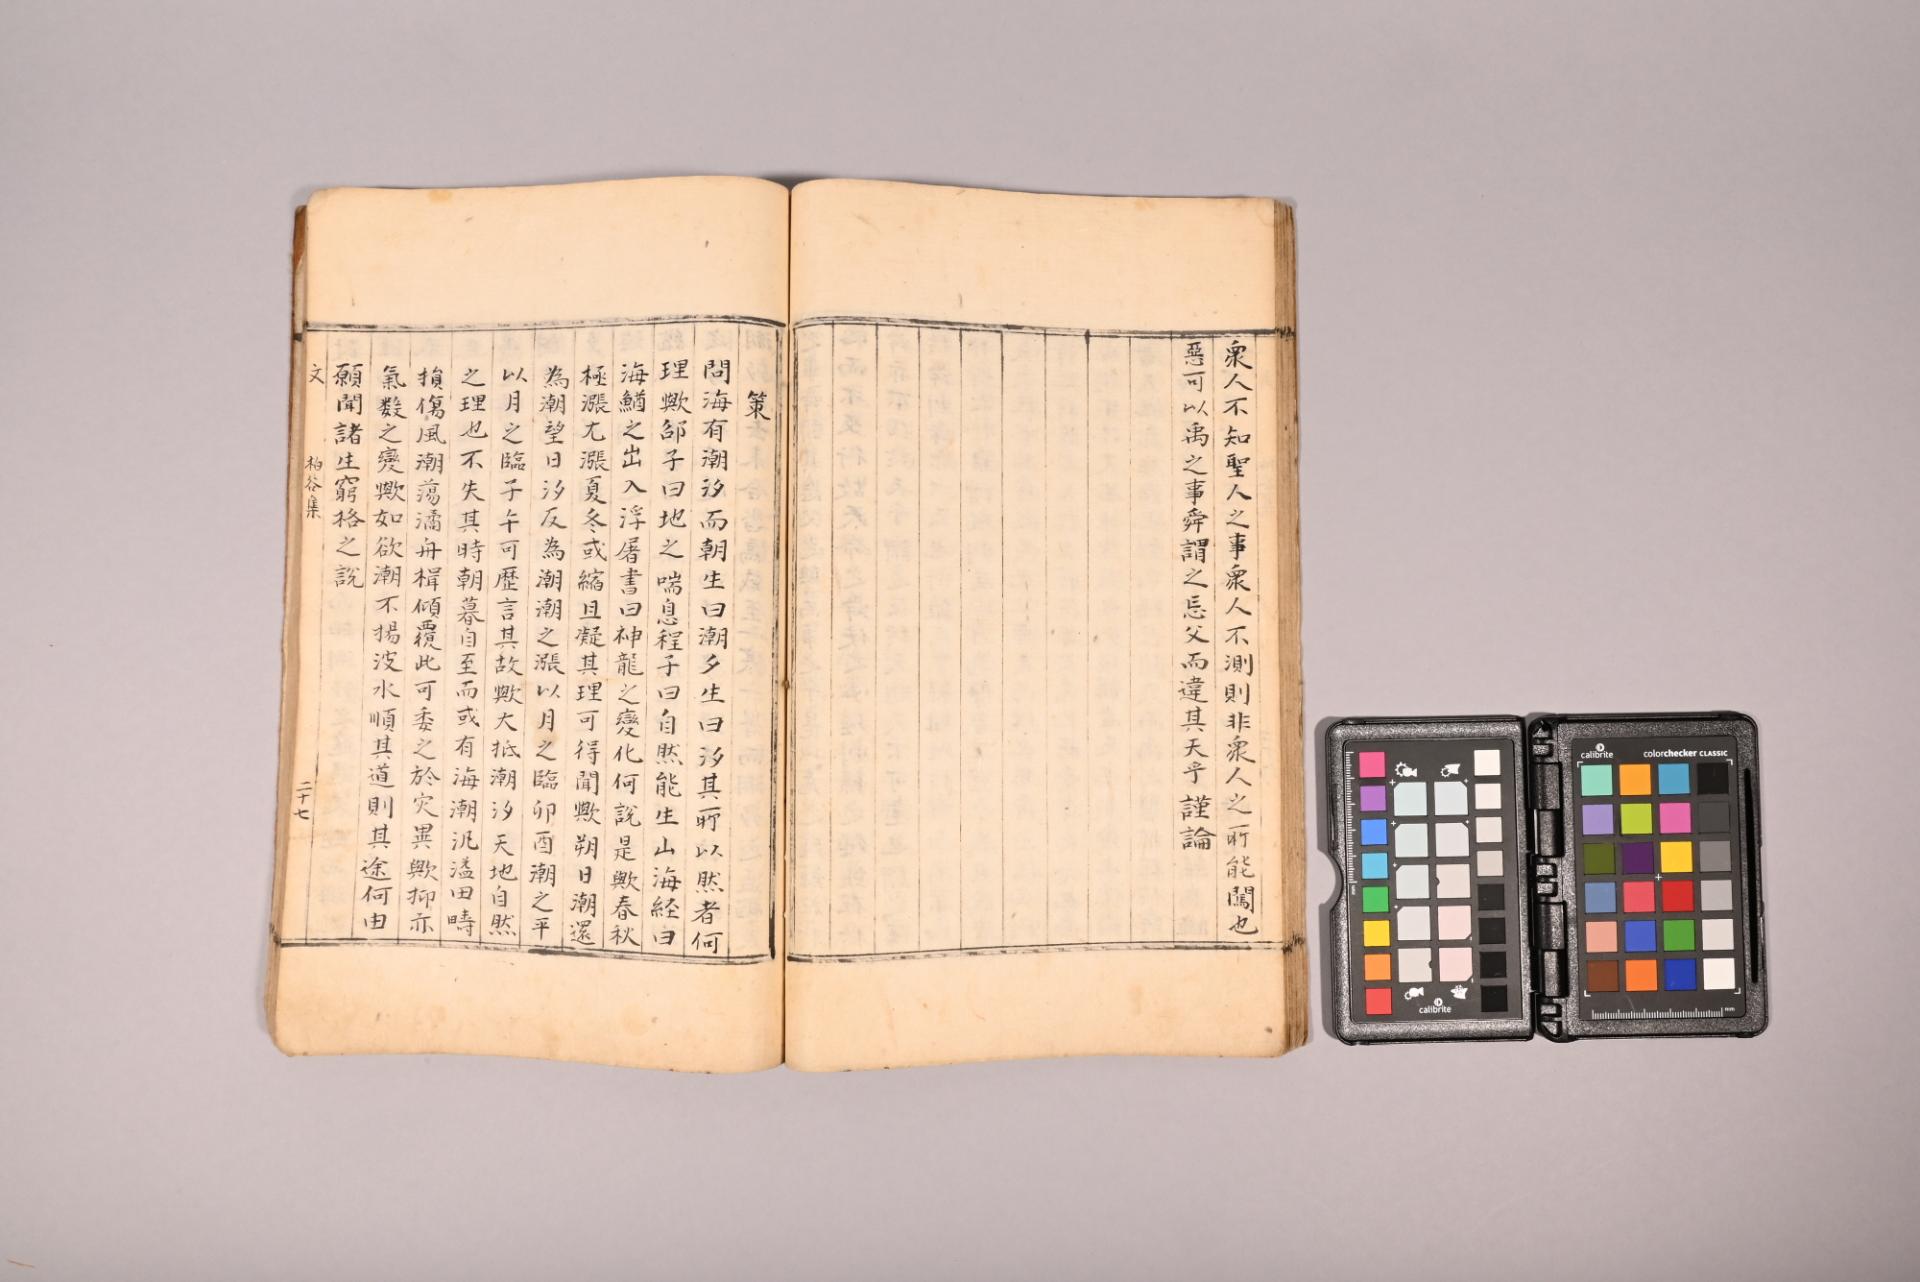 衆人不知聖人之事衆人不測則非衆人之所能闖也
惡可以禹之事舜謂之忘父而違其天乎謹論
策
問海有潮汐而朝生曰潮夕生曰汐其所以然者何
理歟邵子曰地之喘息程子曰自然能生山海経曰
海鰌之出入浮屠書曰神龍之變化何說是歟春秋
極漲尤漲夏冬或縮且凝其理可得聞歟朔日潮還
為潮望日汐反為潮潮之漲以月之臨卯酉潮之平
以月之臨子午可歷言其故歟大抵潮汐天地自然
之理也不失其時朝暮自至而或有海潮汎溢田疇
損傷風潮蕩潏舟楫傾覆此可委之於灾異歟抑亦
氣数之變歟如欲潮不揚波水順其道則其途何由
願聞諸生窮格之說
文 柏谷集 二十七
calibrite
calibrite
colorchecker CLASSIC
mm